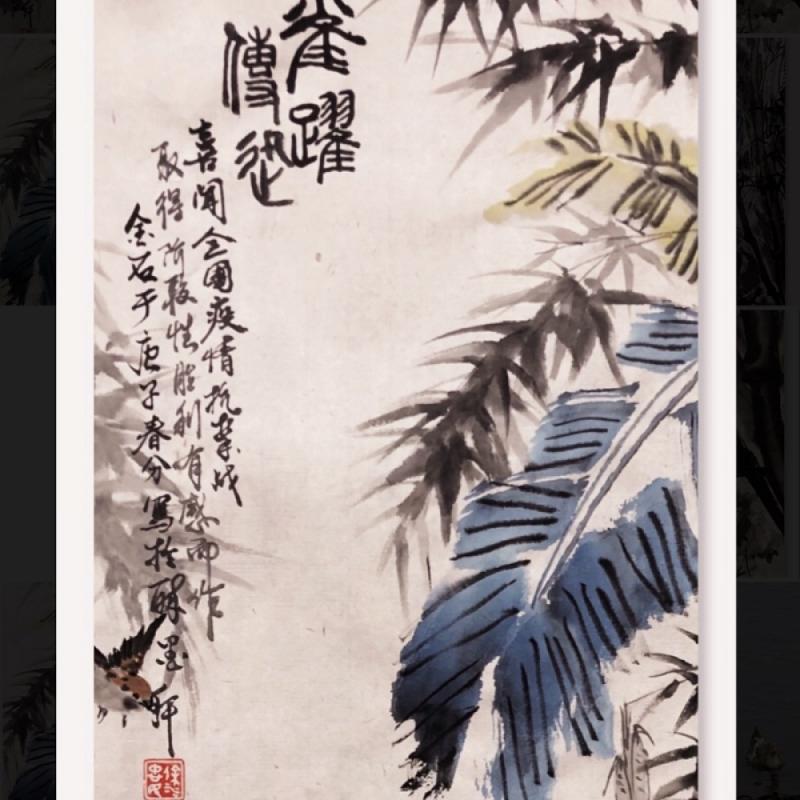 雀躍
傳
喜聞全國疫情抗擊战
取得阶段性胜利有感而作
金石于庚子春分寫於墨軒